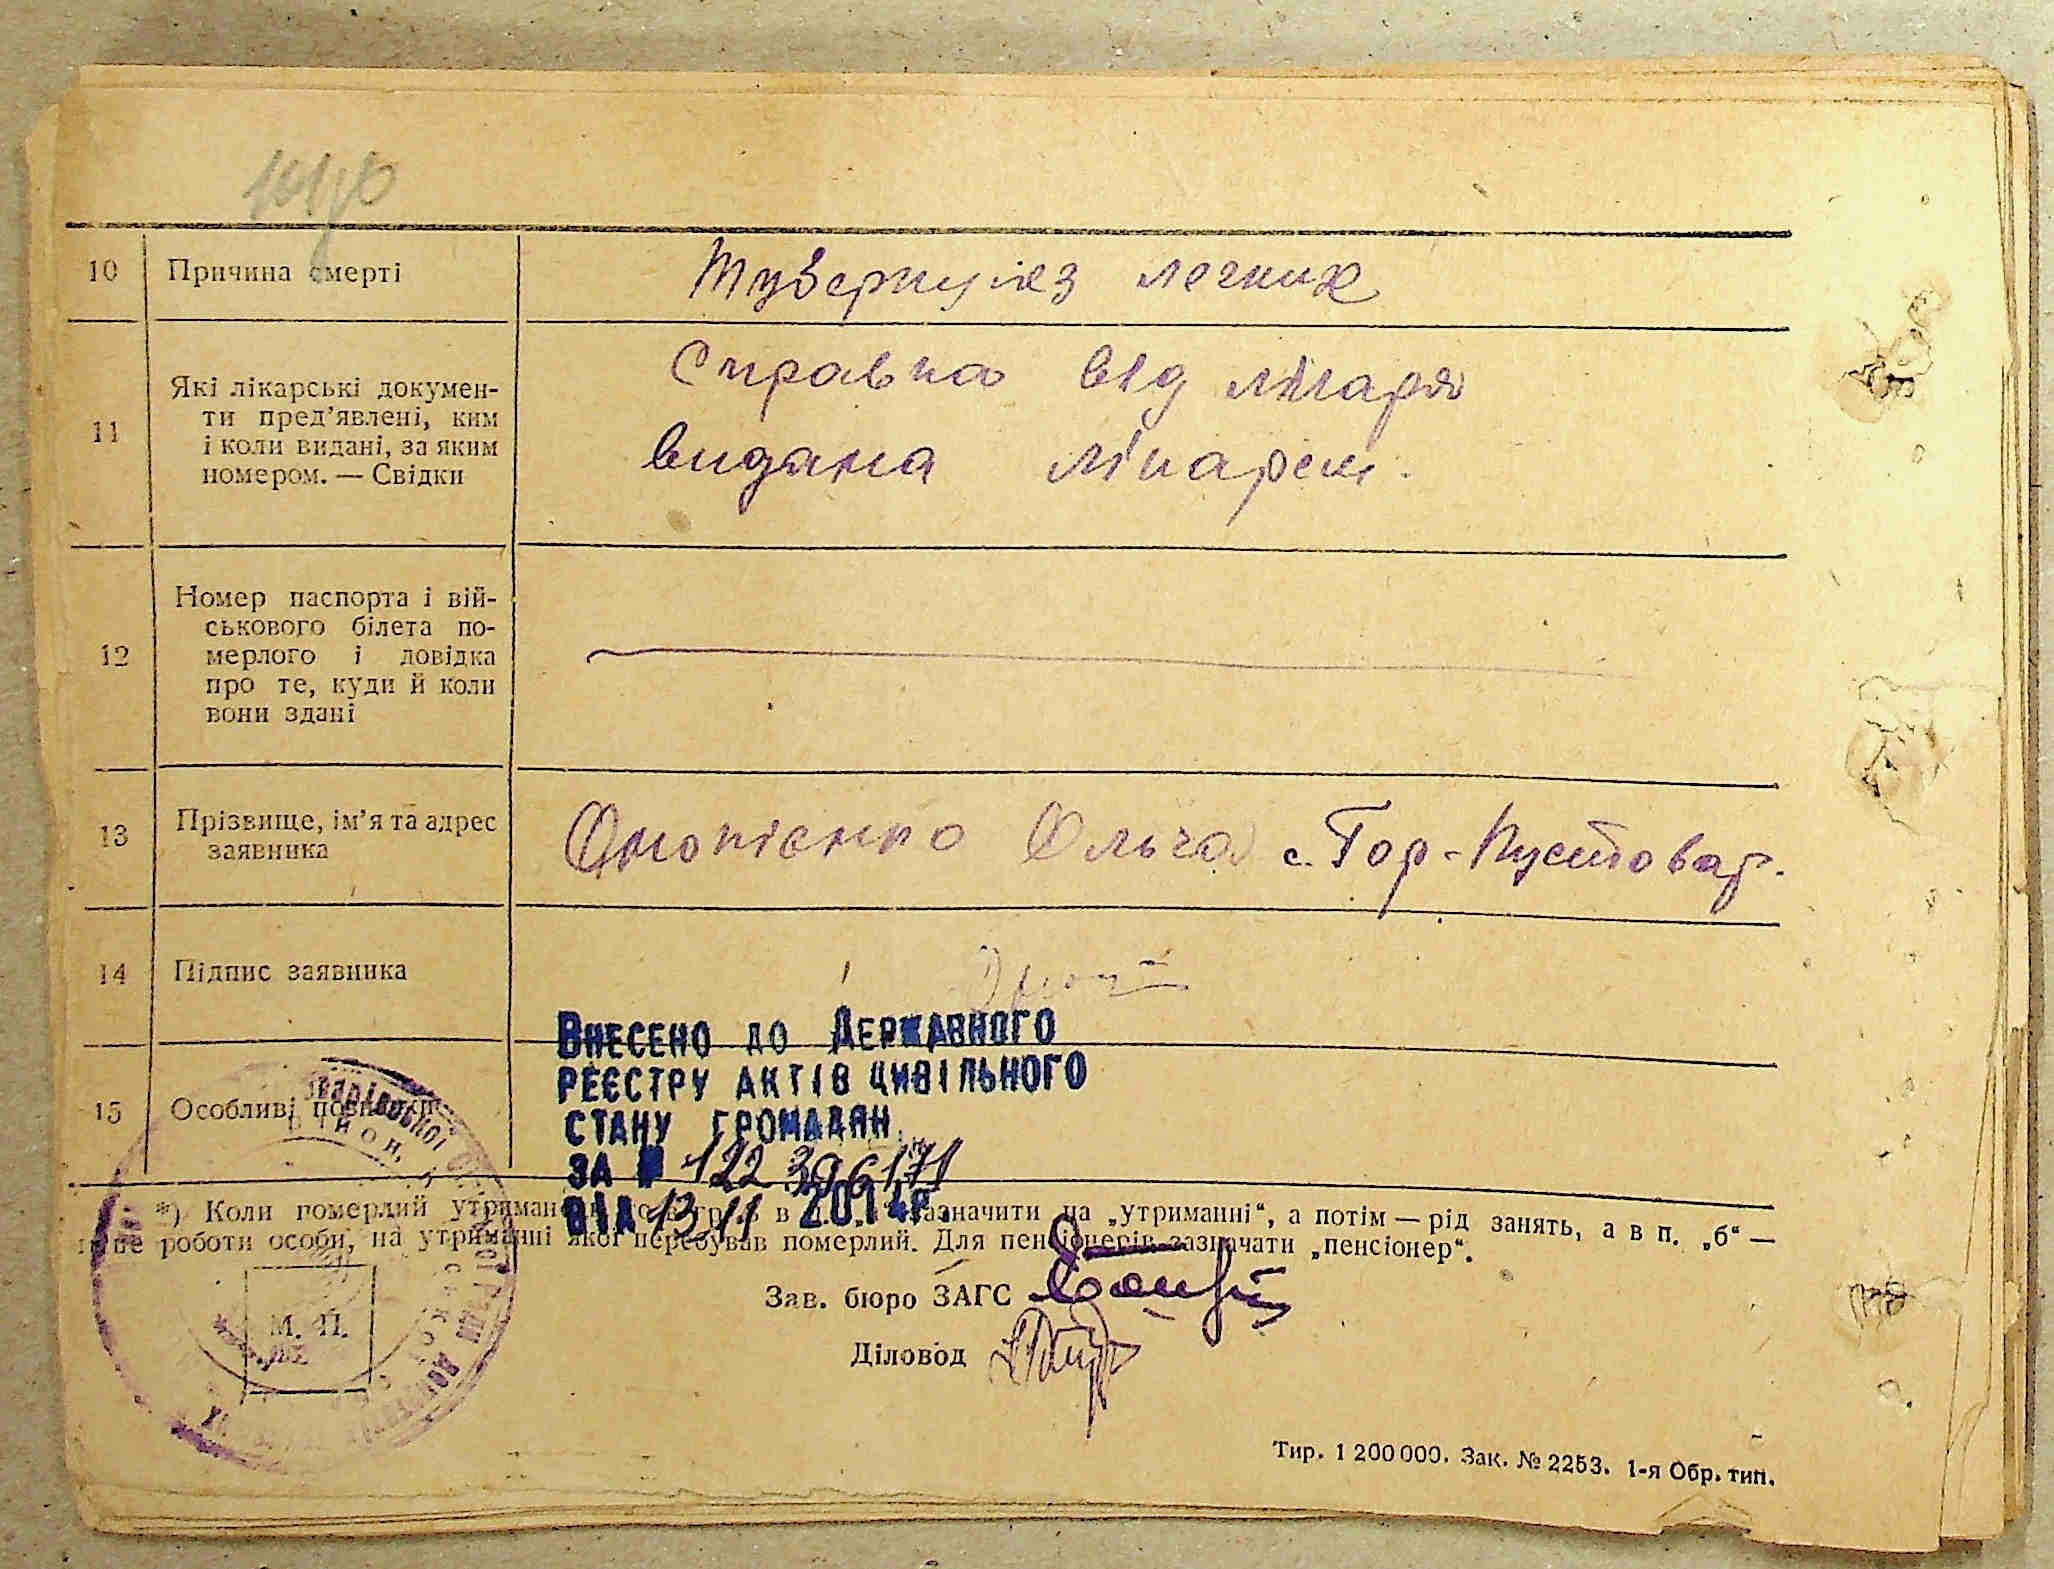 10 Причина смерті Туберкульоз легких
11 Які лікарські докумен-
ти пред’явлені, ким
і коли видані, за яким
номером. — Свідки
Справка від лікаря
видана лікарем.
12 Номер паспорта і вій-
ськового білета по-
мерлого і довідка
про те, куди й коли
вони здані
13 Прізвище, ім’я та адрес
заявника
Онопієнко Ольга с. Гор-Пустовар.
14 Підпис заявника
15 Особливі
Внесено до Державного
реєстру актів цивільного
стану громадян
за № 122 396171
від 13 11 2014р.
*) Коли померлий в зазначити на „утриманні“, а потім — рід занять, а в п. „б“ —
роботи особи, на утриманні якої перебував померлий. Для пенсіонерів зазначати „пенсіонер“.
Зав. бюро ЗАГС
М. П.
Діловод
Тир. 1 200 000. Зак. № 2253. 1-я Обр. тип.